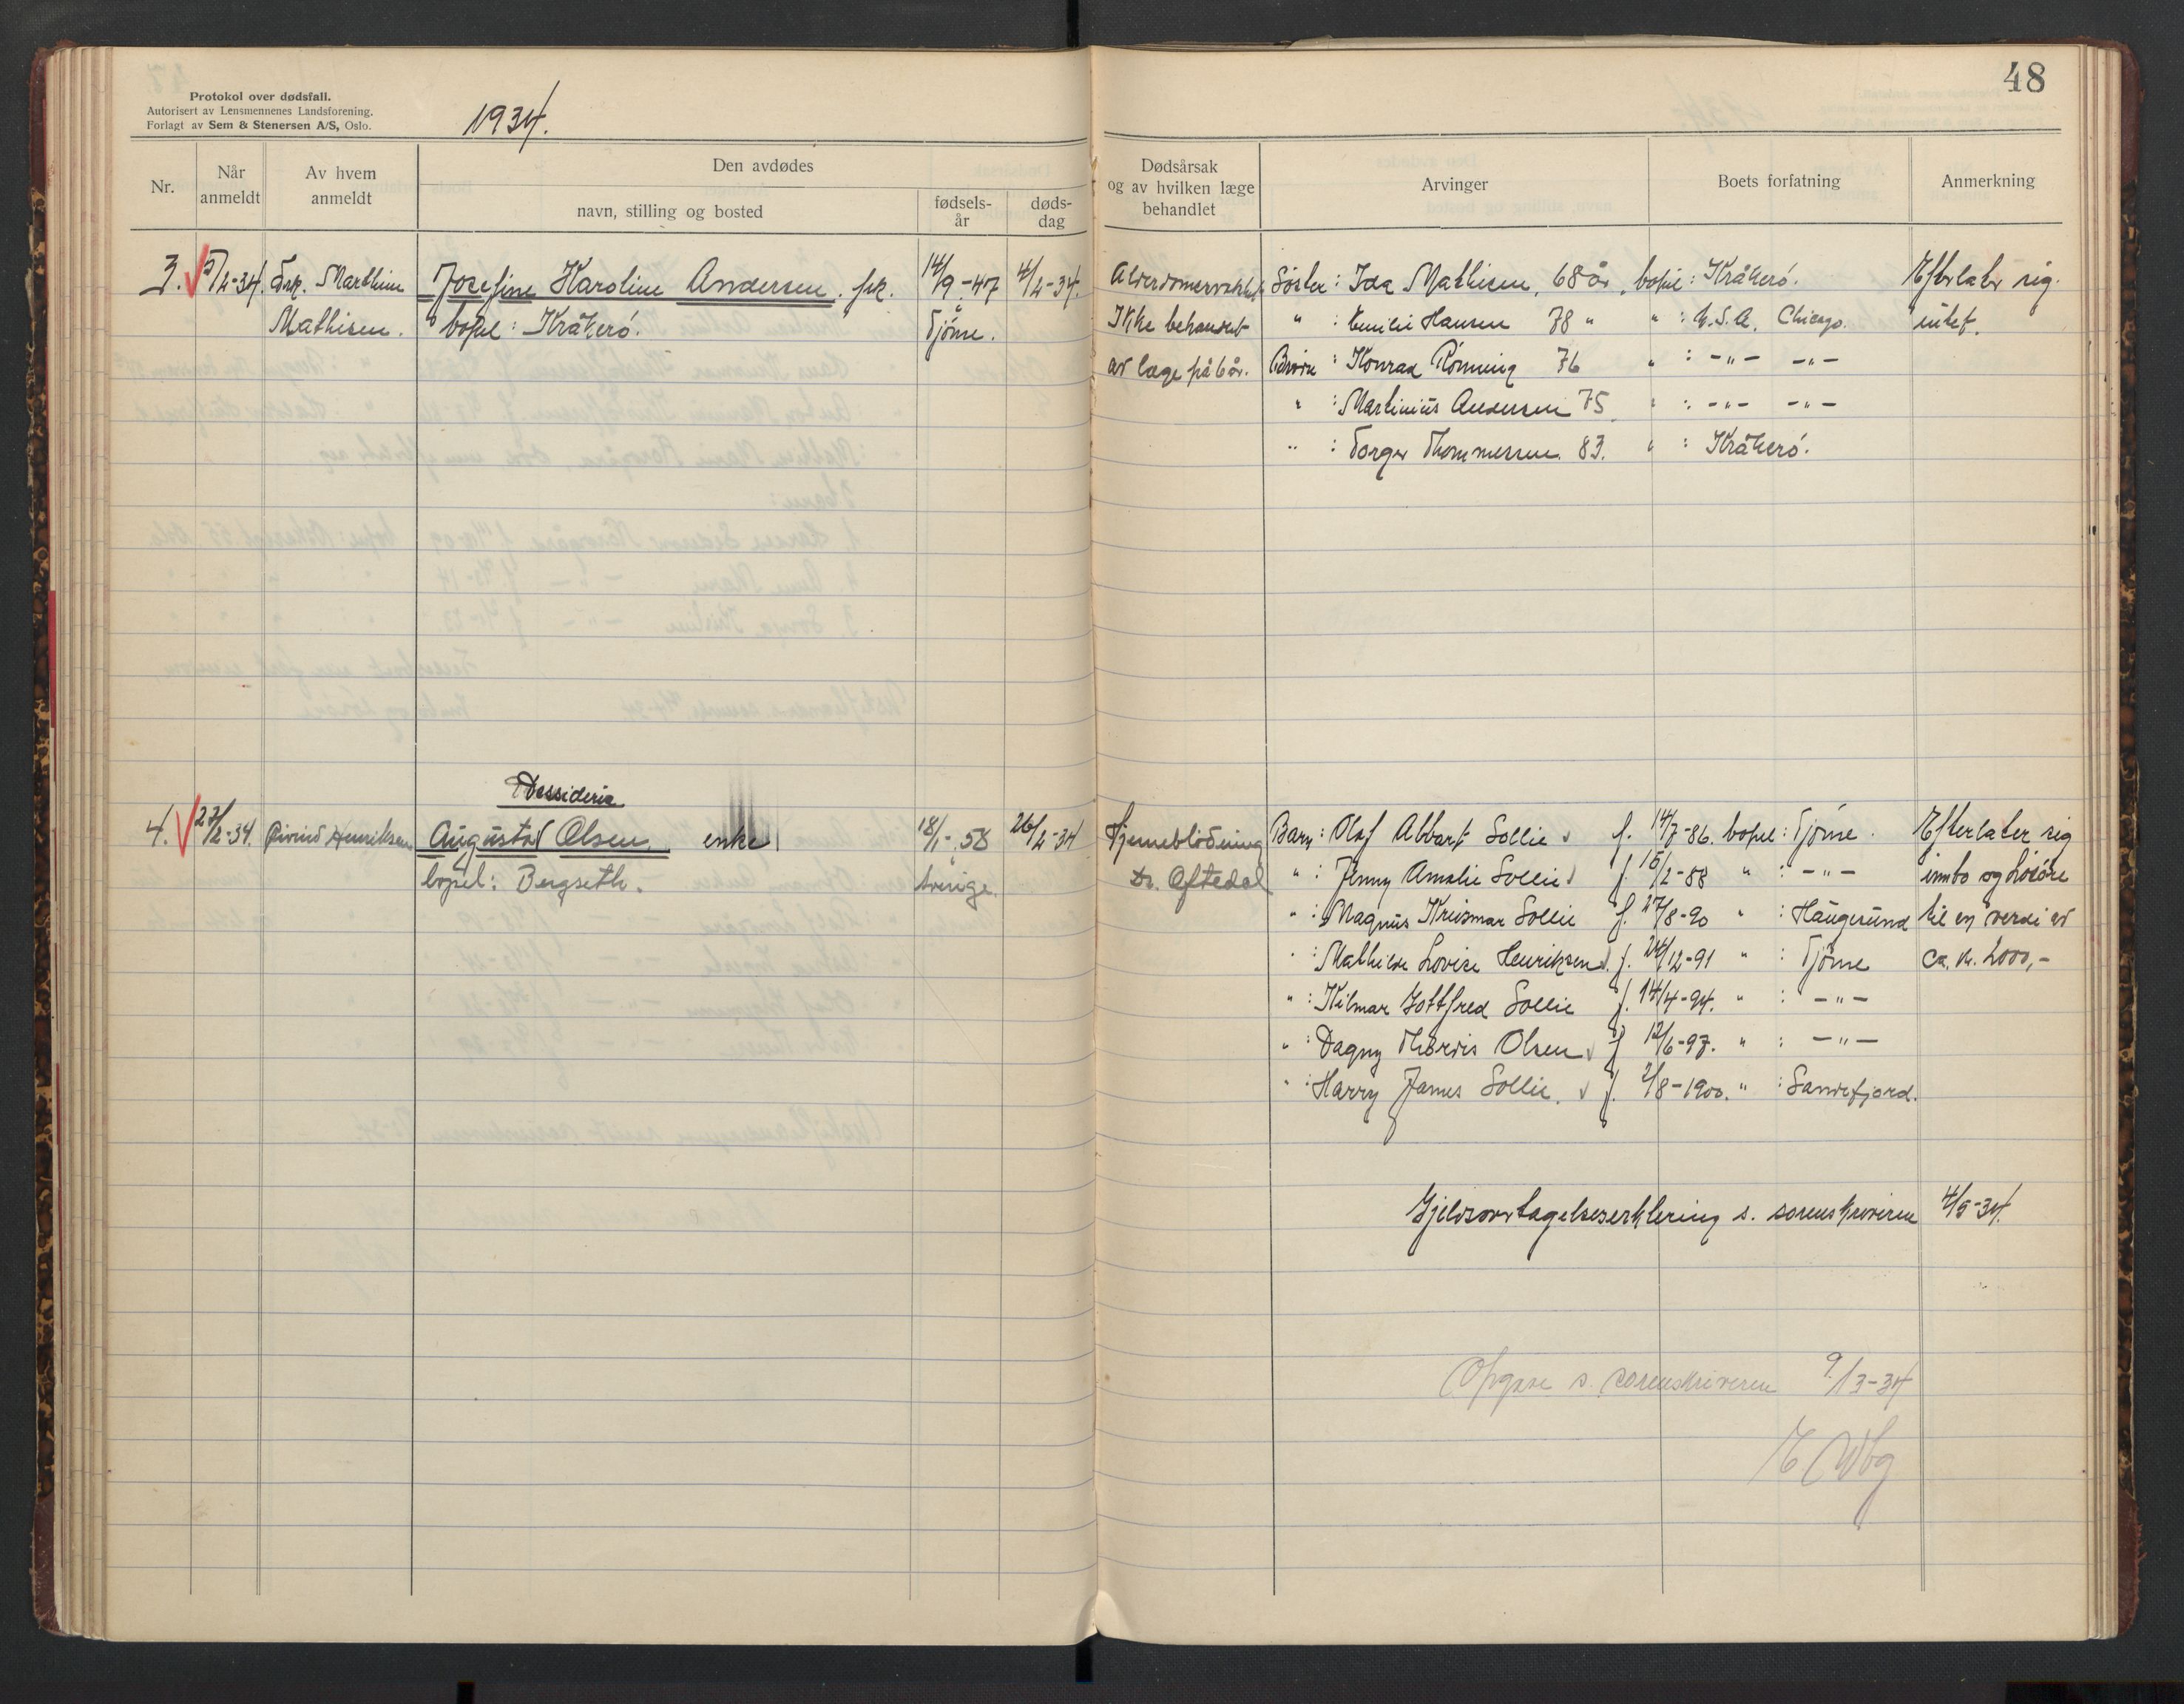 48
Protokol over dødsfall.
Autorisert av Lensmennenes Landsforening.
Forlagt av Sem & Stenersen A/S, Oslo.
1934.
Nr.
Når anmeldt
Av hvem anmeldt
Den avdødes
navn, stilling og bosted
fødsels-år
døds-dag
Dødsårsak og av hvilken læge behandlet
Arvinger
Boets forfatning
Anmerkning
3. 5/2-34. Frk. Marthine Josefine Karoline Andersen. frk. 14/9-47 4/2-34. Søster: Ida Mathisen, 68 år, bopel: Kråkerö. Efterlater sig
Mathisen. bopel: Kråkerö. Tjöme. Ikke behandlet " : Emilie Hansen 78 " " : U.S.A. Chicago. intet.
av læge på 6 år. Brødre : Konrad Rönning 76 " : -"- -"-
" : Martinius Andersen 75 " : -"- -"-
" : Torger Thommessen 83. " : Kråkerö.
Dessideria
4. 27/2-34. Øivind Henriksen Augusta Olsen enke 18/1-58 26/2-34 Hjerneblödning Barn: Olaf Abbart Sollie f. 14/7-86. bopel: Tjöme. Efterlater sig
bopel: Bergseth. Sverige. Dr. Oftedal " : Jenny Amalie Sollie f. 15/2-88 " : -"- innbo og lösöre
" : Magnus Kriosmar Sollie f. 27/8-90 " : Haugesund til en verdi av
" : Mathilde Lovise Henriksen f. 24/12-91 " : Tjöme ca. kr. 2000,-
" : Hilmar Gottfred Sollie f. 14/4-94. " : -"-
" : Dagny Thordis Olsen f 12/6-97. " : -"-
" : Harry James Sollie. f. 2/8-1900. " : Sandefjord.
Gjeldsovertagelseserklering s. sorenskriveren 4/5-34.
Opgave s. sorenskriveren 9/3-34